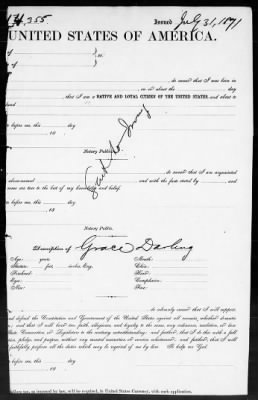 14,355 Issued July 31, 1871
UNITED STATES OF AMERICA.
of } ss.
of }
, do swear that I was born in
in or about the day
, that I am a NATIVE AND LOYAL CITIZEN OF THE UNITED STATES, and about to
abroad
to before me, this day
of , 18
Notary Public.
, do swear that I am acquainted
above-named and with the facts stated by
same are true to the best of my knowledge and belief.
to before me, this day
18
Notary Public.
Description of Grace Darling
Age: years. Mouth:
Stature: feet, inches, Eng. Chin:
Forehead: Hair:
Eyes: Complexion:
Nose: Face:
, do solemnly swear that I will support,
and defend the Constitution and Government of the United States against all enemies, whether domestic
or and that I will bear true faith, allegiance, and loyalty to the same, any ordinance, resolution, or law
State Convention or Legislature to the contrary notwithstanding; and further, that I do this with a full
tion, pledge, and purpose, without any mental reservation or evasion whatsoever; and further, that I will
faithfully perform all the duties which may be required of me by law. So help me God.
to before me, this day
18
Notary Public.
dollars tax, as imposed by law, will be required, in United States Currency, with each application.